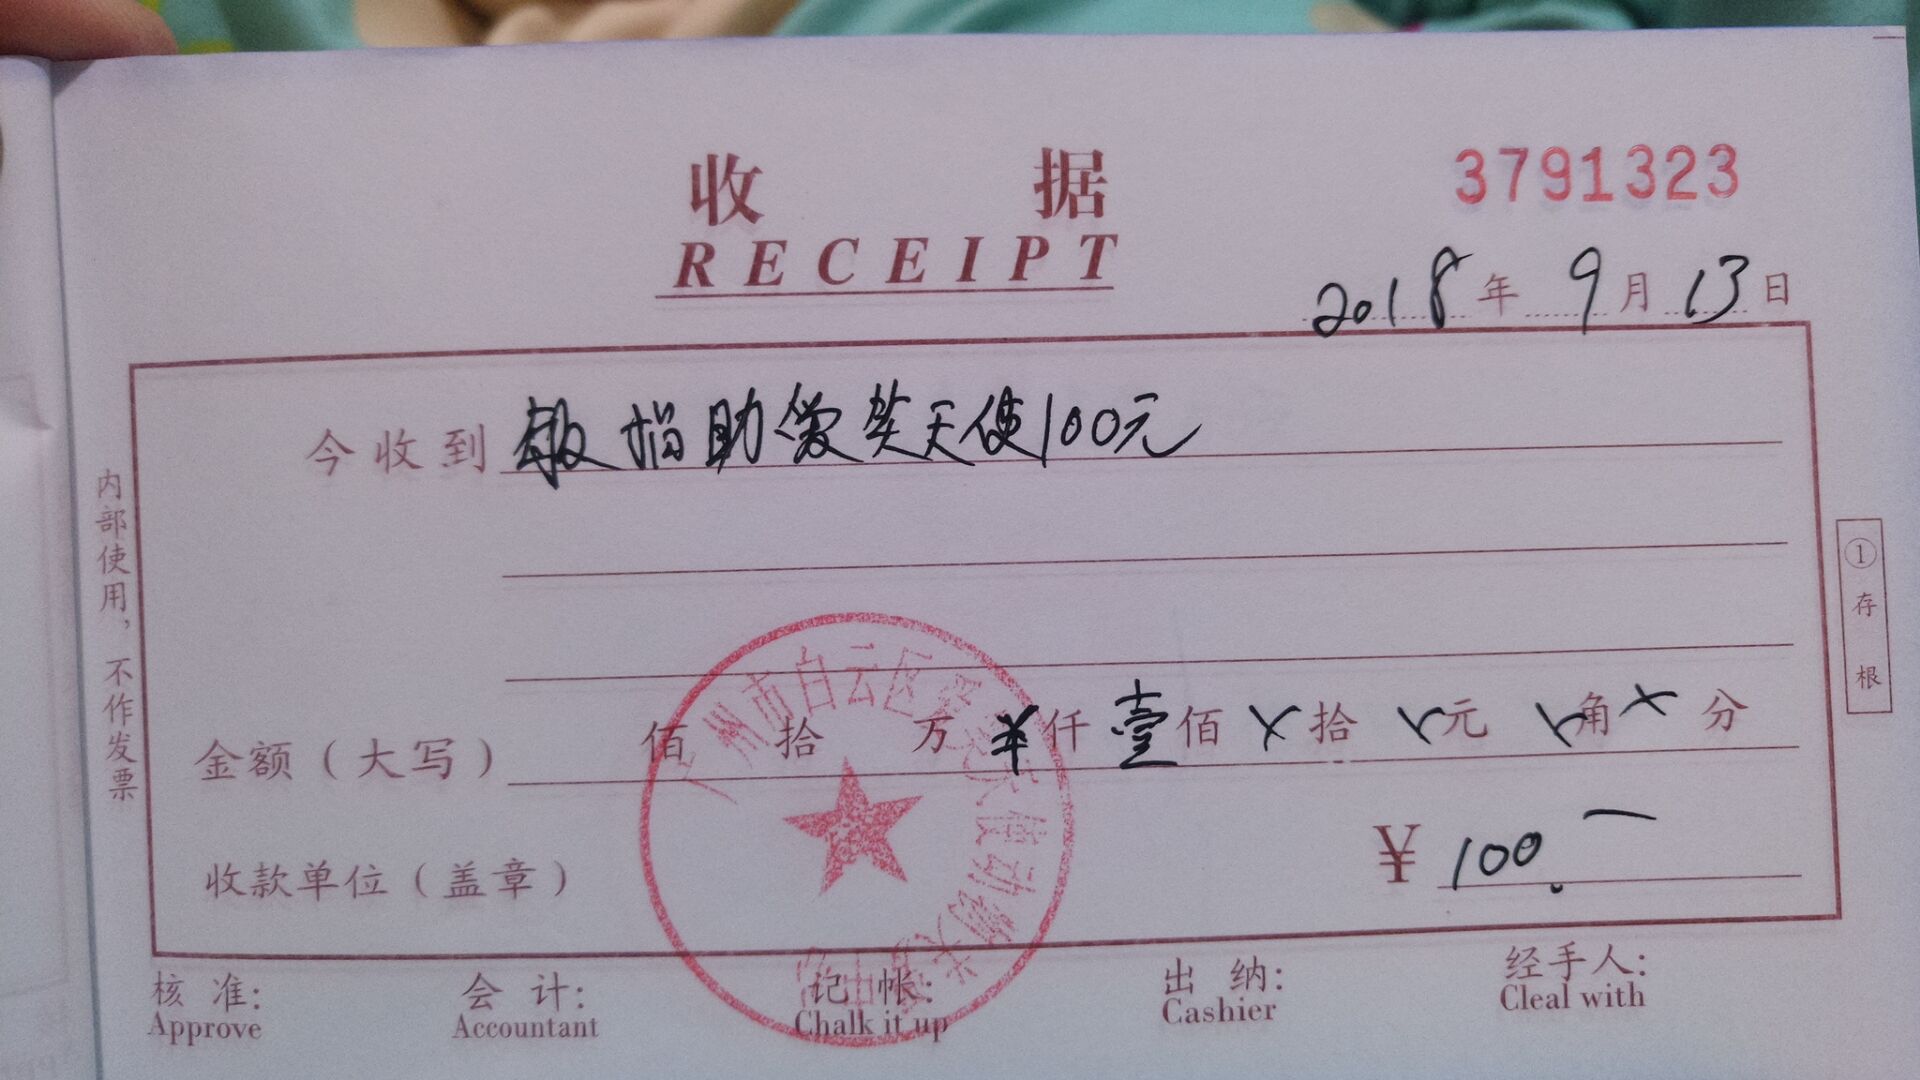 收据
3791323
RECEIPT
2018年9月13日
今收到 敏捐助爱笑天使100元
金额(大写) 佰 拾 万 ¥仟 壹佰 ×拾 ×元 ×角 ×分
收款单位(盖章) ¥ 100.一
核准: 会计: 记帐: 出纳: 经手人:
Approve Accountant Chalk it up Cashier Cleal with
内部使用,不作发票
①存根
广州市白云区 天使动物关